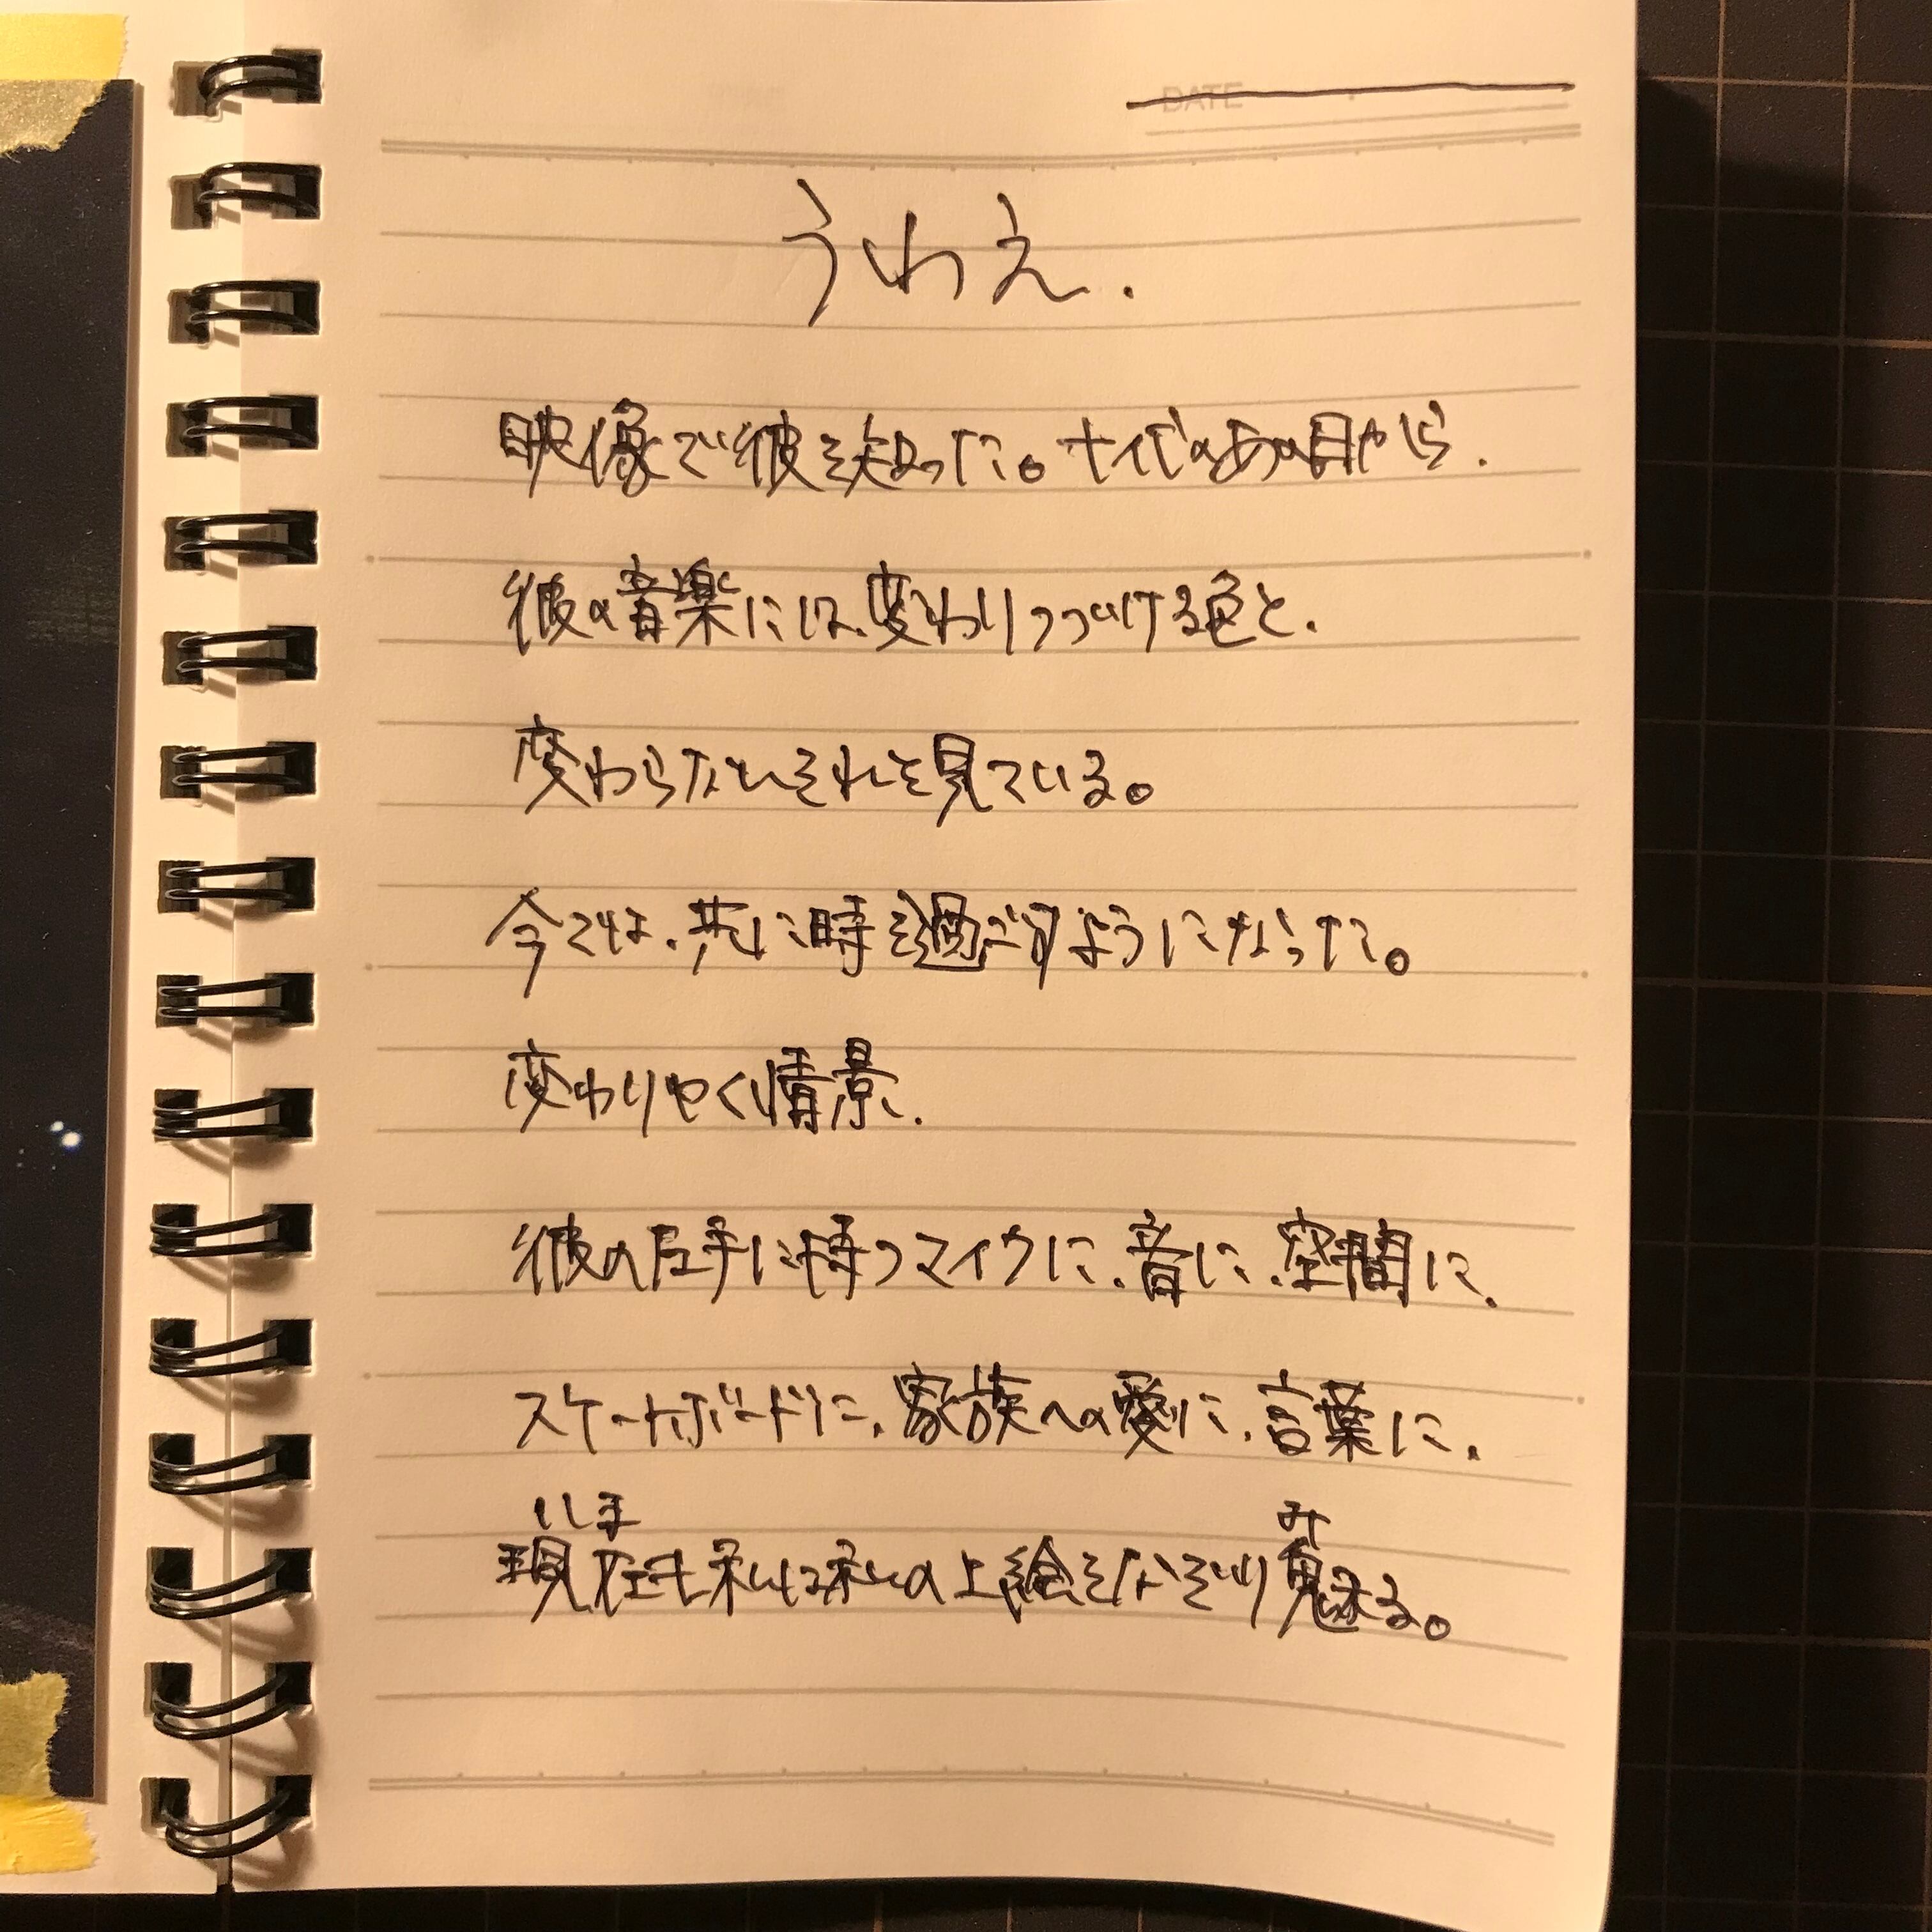 DATE
うわえ.
映像で彼を知った。十代のあの日から.
彼の音楽には、変わりつづける色と.
変わらないそれを見ている。
今では、共に時を過ごすようになった。
変わりゆく情景.
彼の左手に持つマイクに、音に、空間に、
スケートボードに、家族への愛に、言葉に、
いま み
現在も私は私の上絵をなぞり魅る。